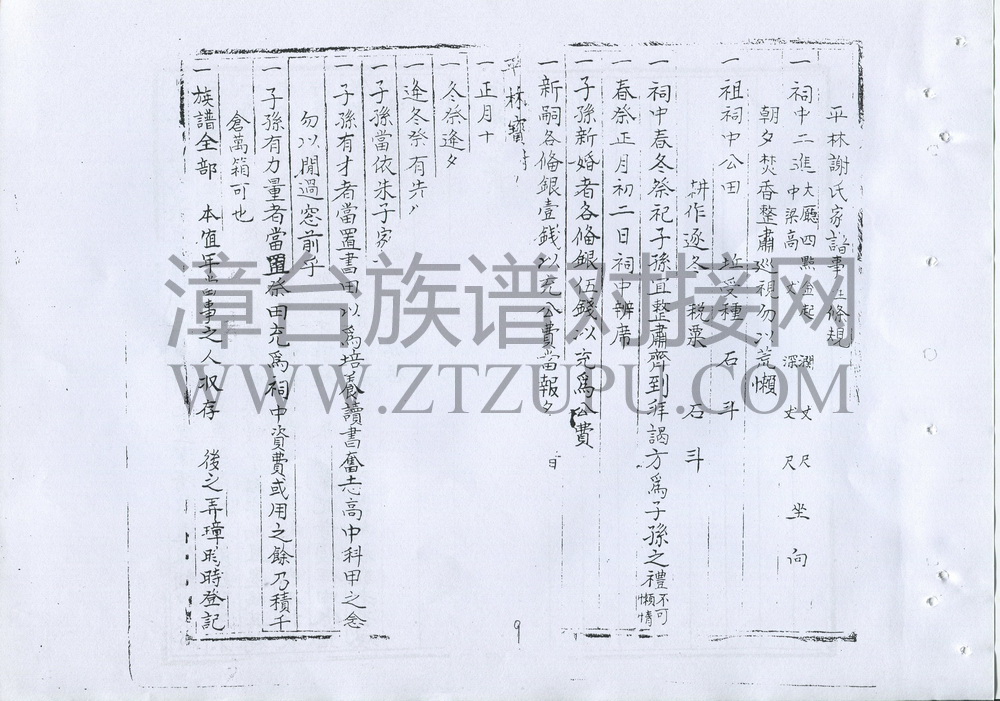 平林謝氏家譜事宜條規
一祠中二進大廳四點金起 濶 丈 尺 坐 向
中梁高 丈 深 丈 尺
朝夕焚香整肅巡視勿以荒懶
一祖祠中公田 址受種 石 斗
耕作逐冬稅粟 石 斗
一祠中春冬祭祀子孫宜整肅齊到拜謁方為子孫之禮不可懶惰
一春祭正月初二日祠中辦席
一子孫新婚者各備銀伍錢以充為公費
一新嗣各備銀壹錢以充公費當報 日
平林寶
一正月十
一冬祭逢
一逢冬祭有
一子孫當依朱子家
一子孫有才者當置書田以為培養讀書奮志高中科甲之念
勿以閒過窓前乎
一子孫有力量者當置祭田充為祠中資費或用之餘乃積千
倉萬箱可也
一族譜全部 本值年當事之人收存 後之弄璋即時登記
9
漳台族谱对接网
WWW.ZTZUPU.COM